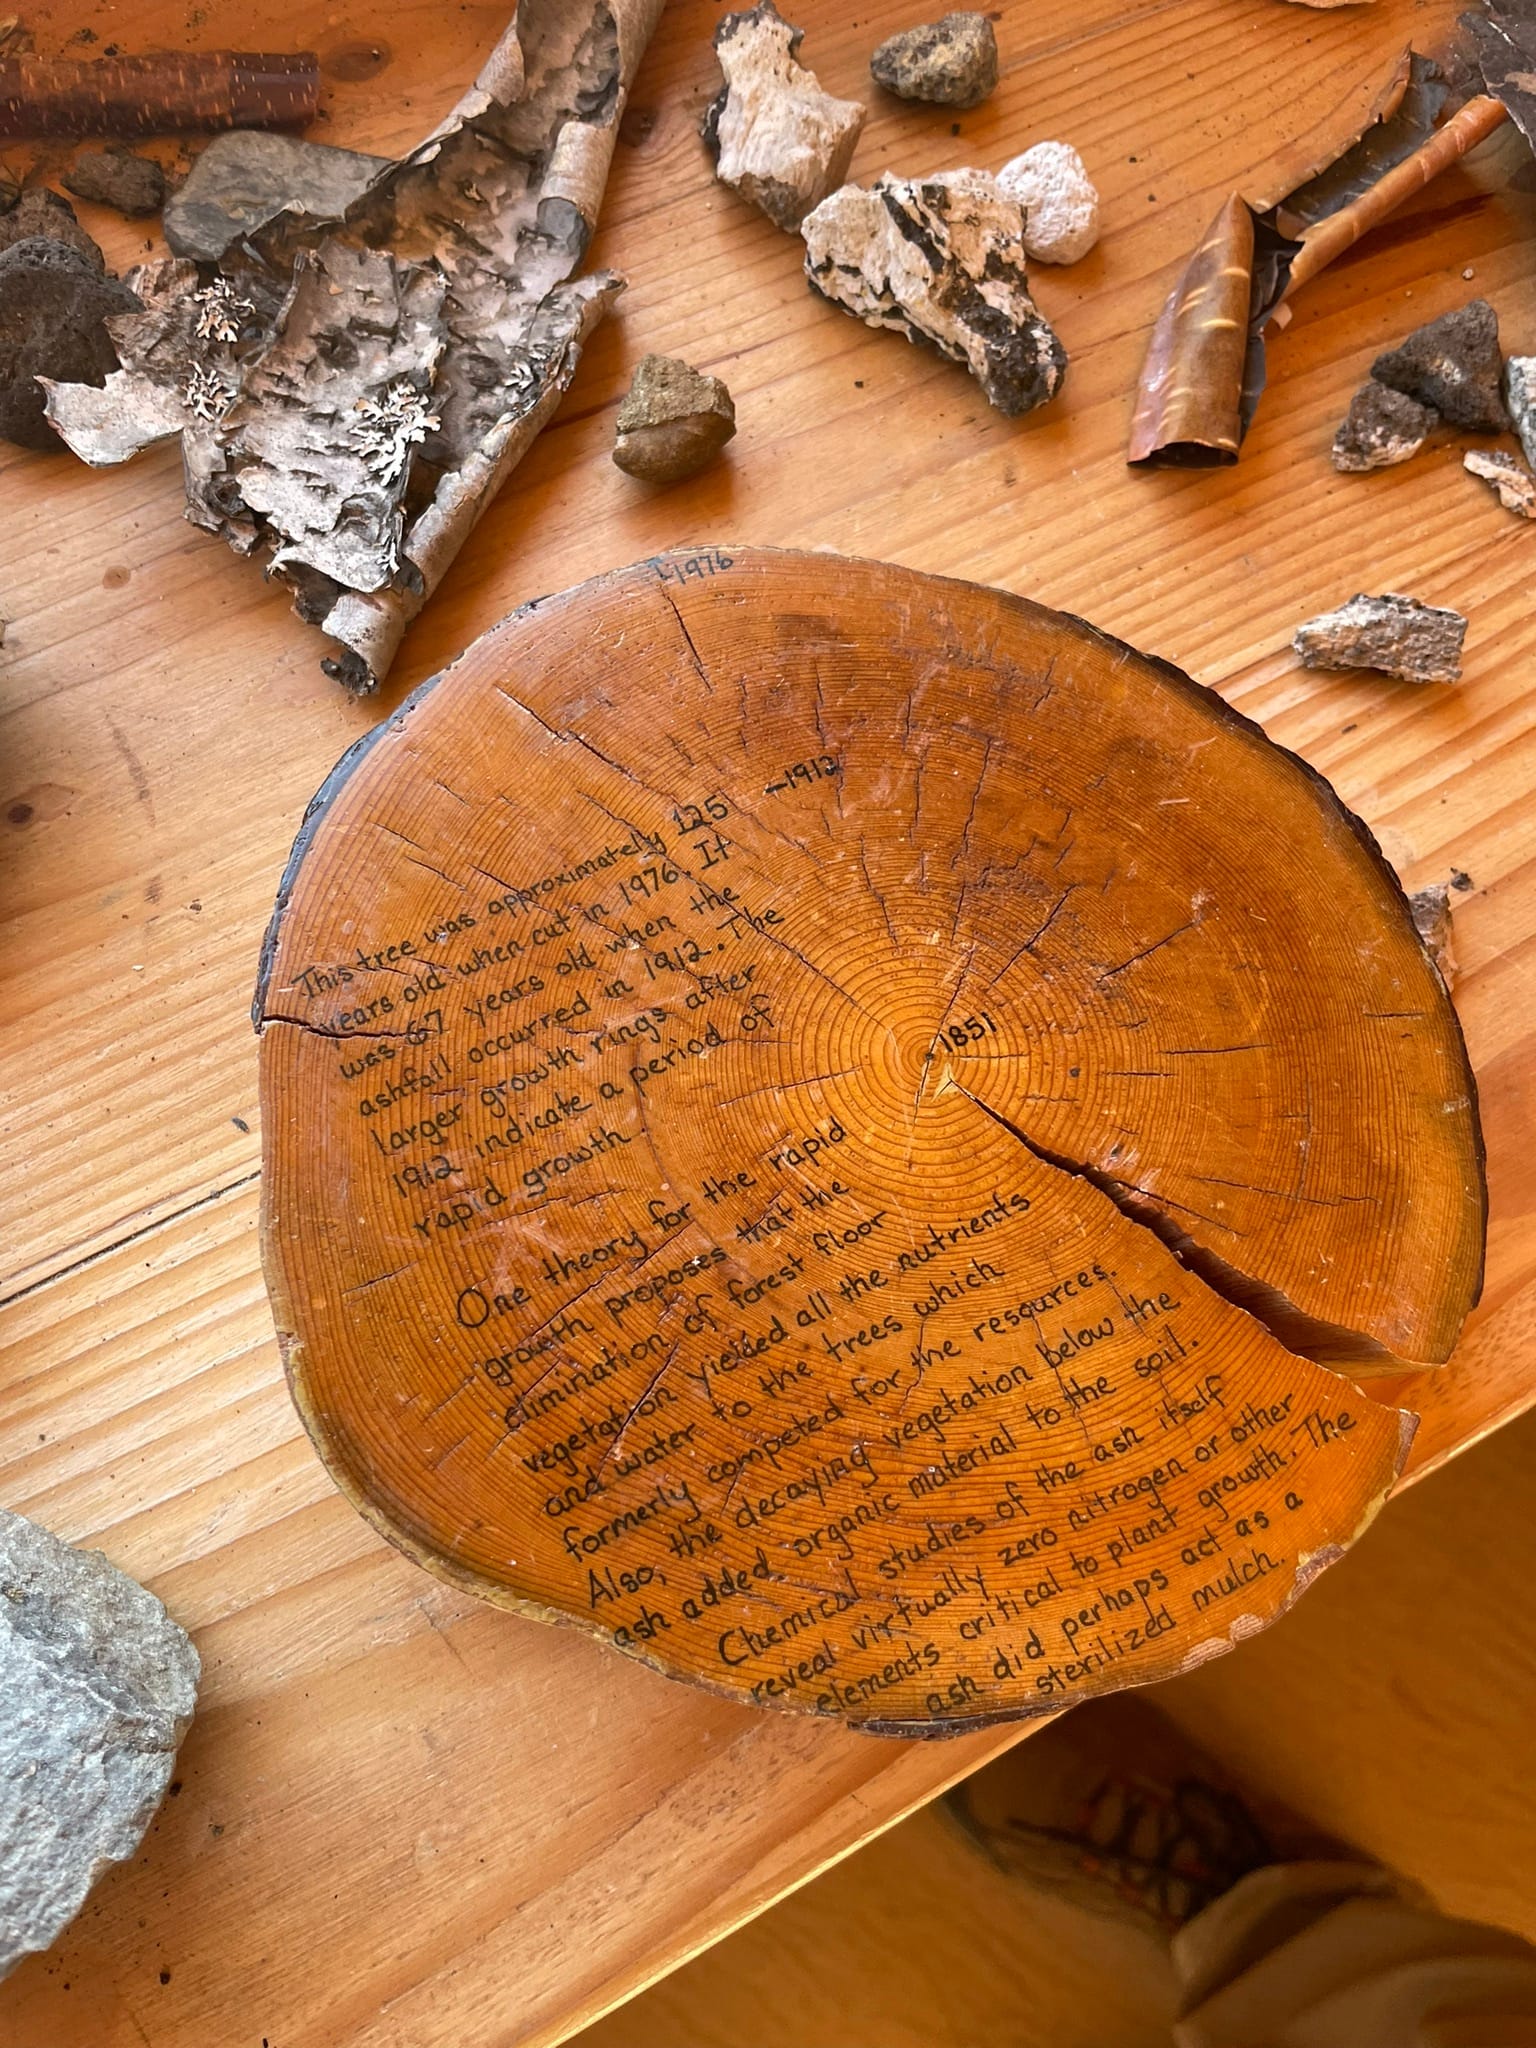 1976
—1912
This tree was approximately 125
years old when cut in 1976. It
was 67 years old when the
ashfall occurred in 1912. The
larger growth rings after
1912 indicate a period of
rapid growth
1851
One theory for the rapid
growth proposes that the
elimination of forest floor
vegetation yielded all the nutrients
and water to the trees which
formerly competed for the resources.
Also, the decaying vegetation below the
ash added organic material to the soil.
Chemical studies of the ash itself
reveal virtually zero nitrogen or other
elements critical to plant growth. The
ash did perhaps act as a
sterilized mulch.